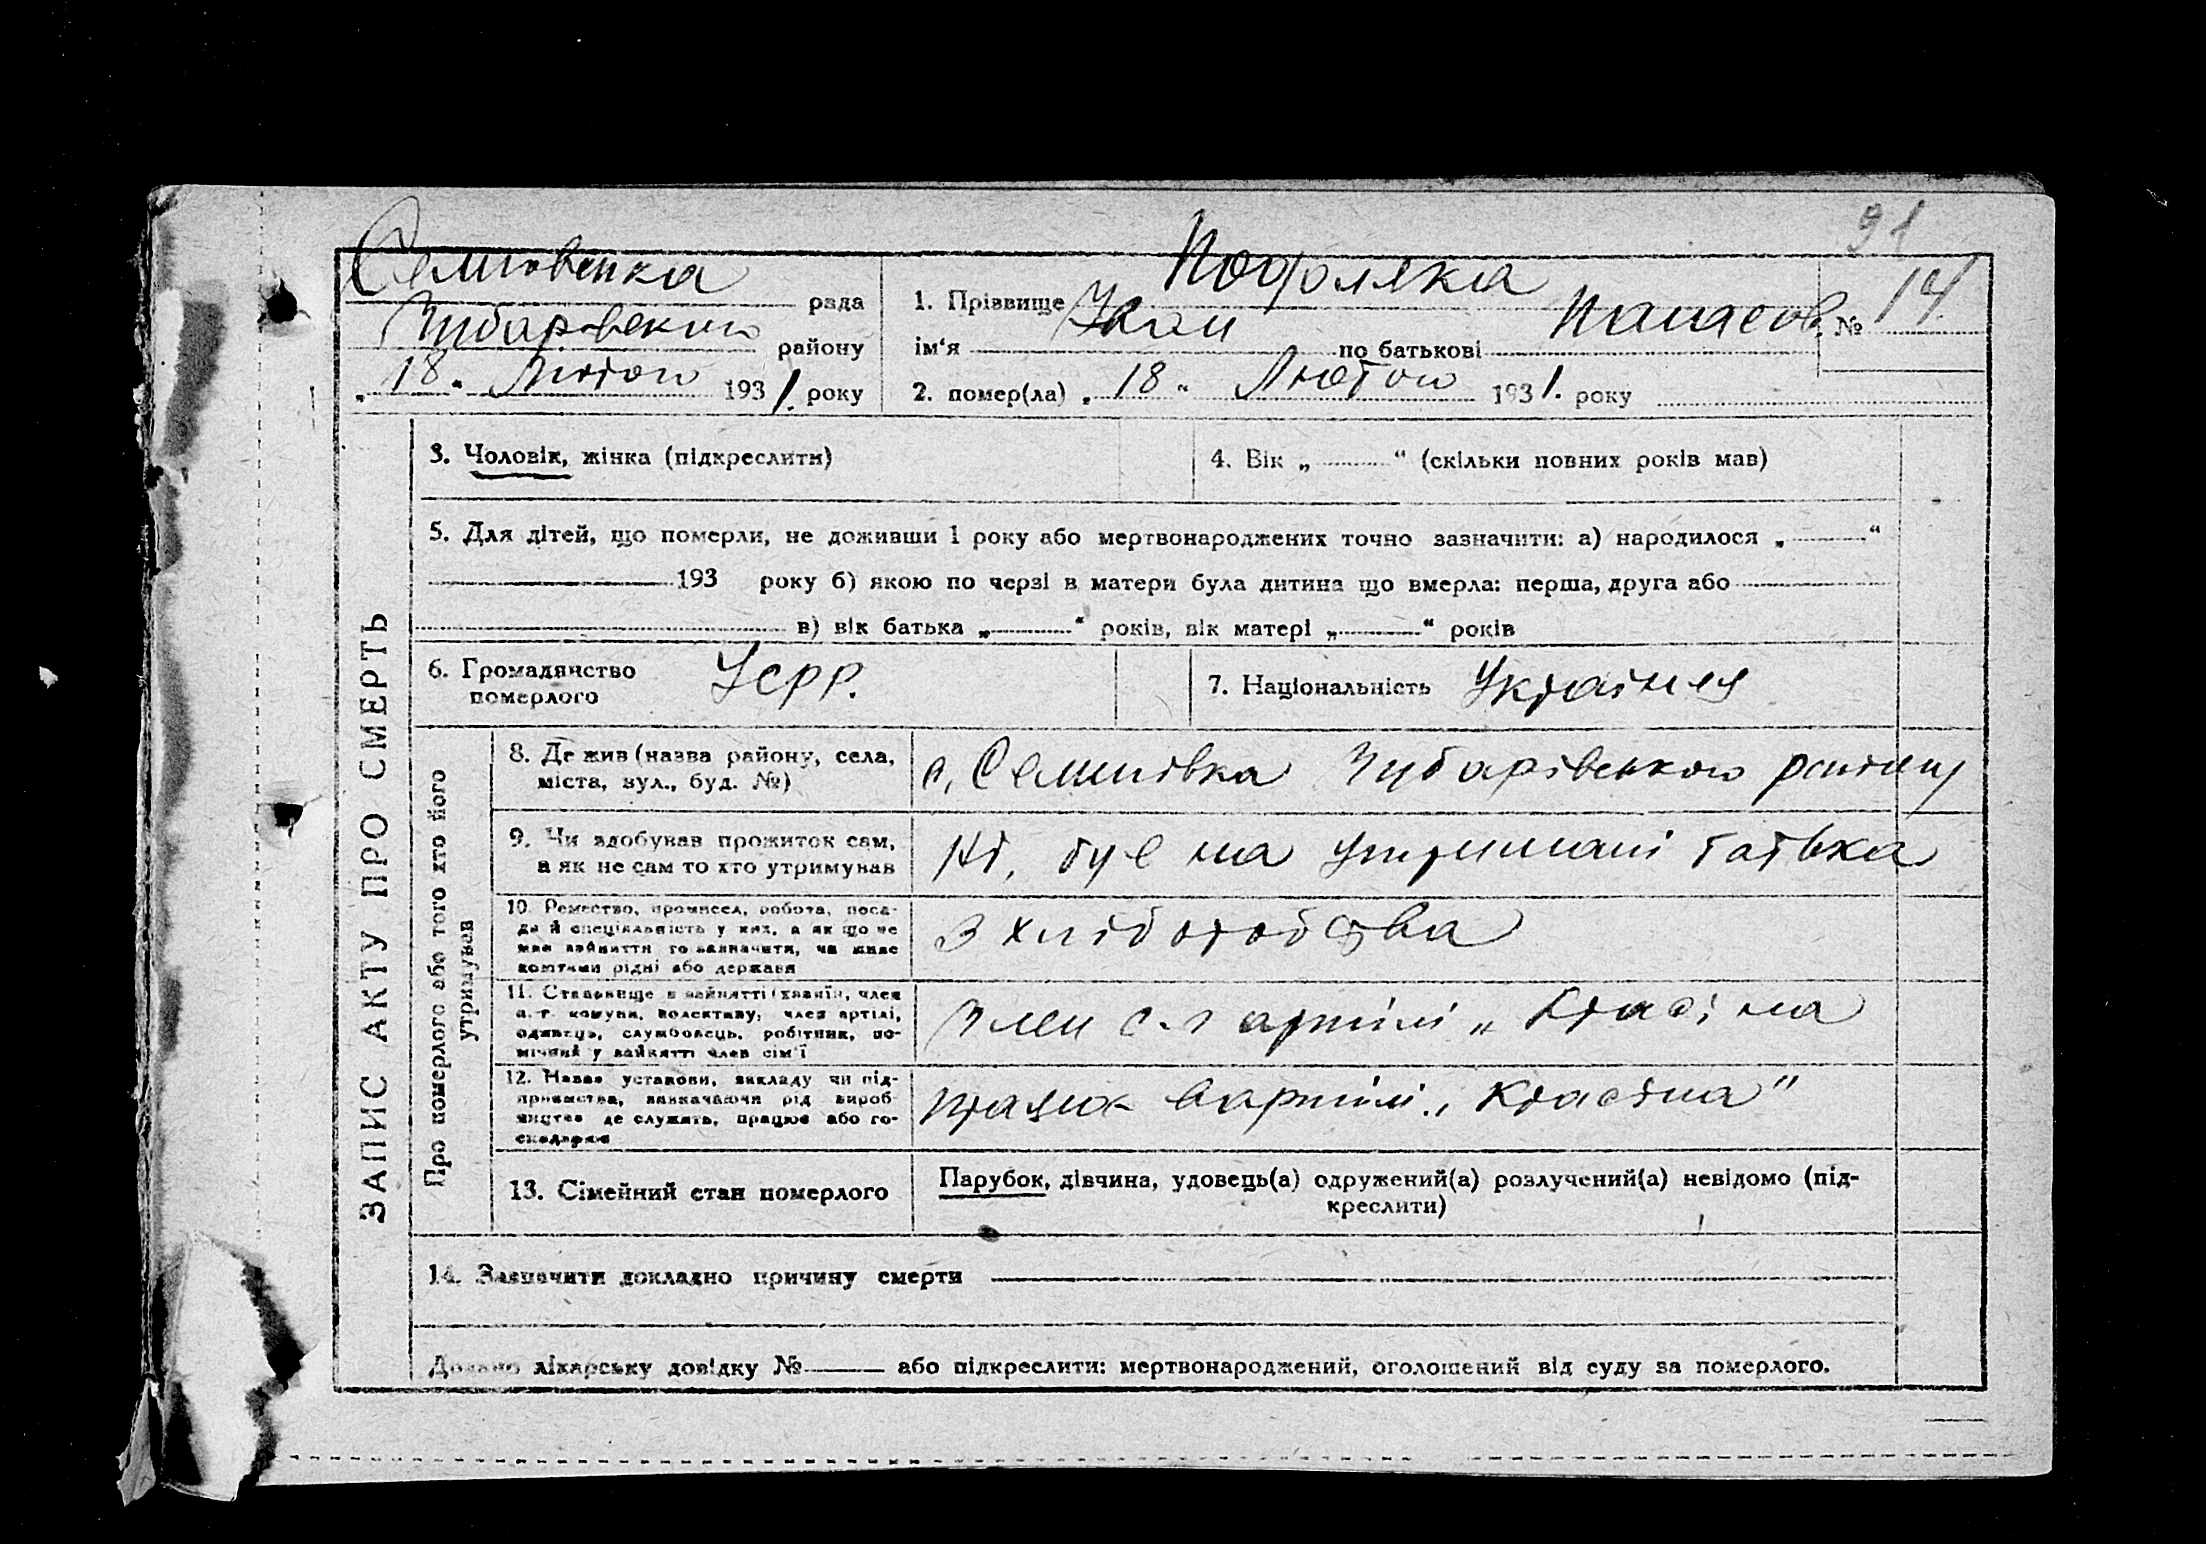 91
Семиовенка рада
Чубаровского району
„ 18 “ Лютого 1931. року
1. Прізвище Подоляка
ім‘я Іван по батькові Панасов. № 14
2. помер(ла) „ 18 “ Лютого 1931. року
ЗАПИС АКТУ ПРО СМЕРТЬ
3. Чоловік, жінка (підкреслити)
4. Вік „ “ (скільки повних років мав)
5. Для дітей, що померли, не доживши 1 року або мертвонароджених точно зазначити: а) народилося „ “
193 року б) якою по черзі в матери була дитина що вмерла: перша, друга або
в) вік батька „ “ років, вік матері „ “ років
6. Громадянство
померлого УСРР.
7. Національність Україней
Про померлого або того хто його
утримував
8. Де жив (назва району, села,
міста, вул., буд. №)
с. Семинівка Чубарівського району
9. Чи здобував прожиток сам,
а як не сам то хто утримував
Ні, був на утриманні батька
10. Ремество, промисел, робота, поса-
да й спеціяльність у них, а як що не
мав зайняття то зазначити, чи живе
коштами рідні або держави
З хліборобства
11. Становище в зайнятті (хазяїн, член
с.-г. комуни, колективу, член артілі,
одинець, службовець, робітник, по-
мічний у зайнятті член сім'ї
Член с.-г артілі „ Красіна
12. Назва установи, закладу чи під-
приємства, зазначаючи рід вироб-
ництва де служить, працює або го-
сподарює
працює в артілі „ Красіна"
13. Сімейний стан померлого
Парубок, дівчина, удовець(а) одружений(а) розлучений(а) невідомо (під-
креслити)
14. Зазначити докладно причину смерти
Додано лікарську довідку № або підкреслити: мертвонароджений, оголошений від суду за померлого.